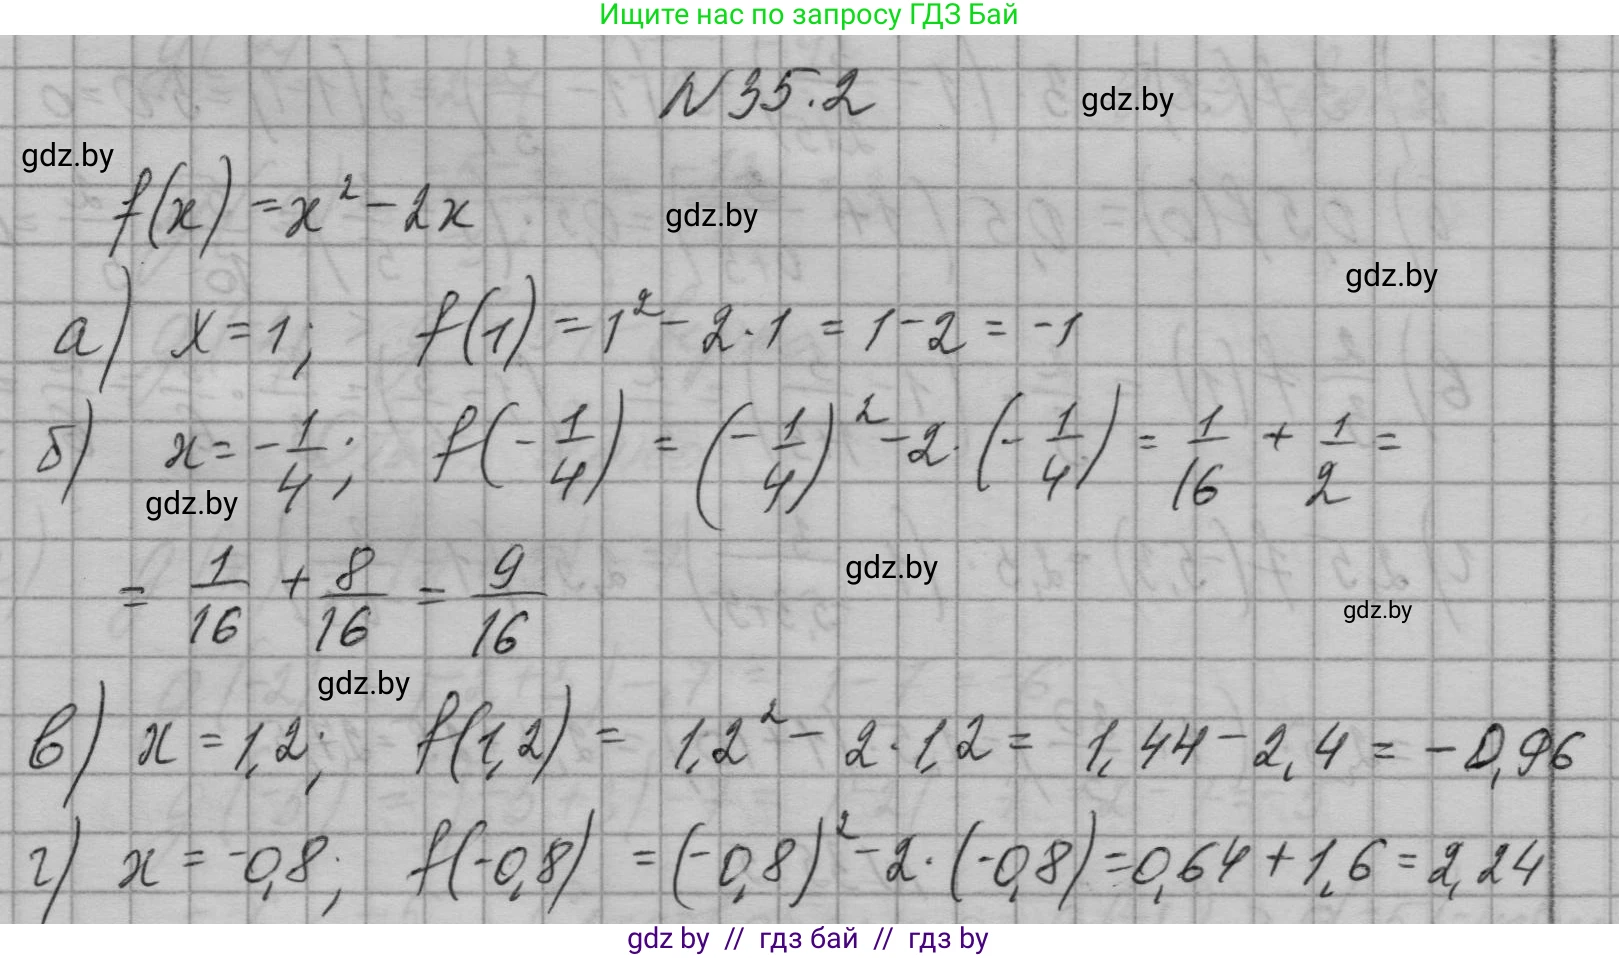 Ищите нас по запросу ГДЗ Бай
N 35.2
gdz.by
gdz.by
f(x) = x² - 2x
gdz.by
gdz.by
а) x = 1; f(1) = 1² - 2 · 1 = 1 - 2 = -1
б) x = -1/4; f(-1/4) = (-1/4)² - 2 · (-1/4) = 1/16 + 1/2 =
gdz.by
= 1/16 + 8/16 = 9/16
gdz.by
gdz.by
gdz.by
в) x = 1,2; f(1,2) = 1,2² - 2 · 1,2 = 1,44 - 2,4 = -0,96
г) x = -0,8; f(-0,8) = (-0,8)² - 2 · (-0,8) = 0,64 + 1,6 = 2,24
gdz by // гдз бай // гдз by